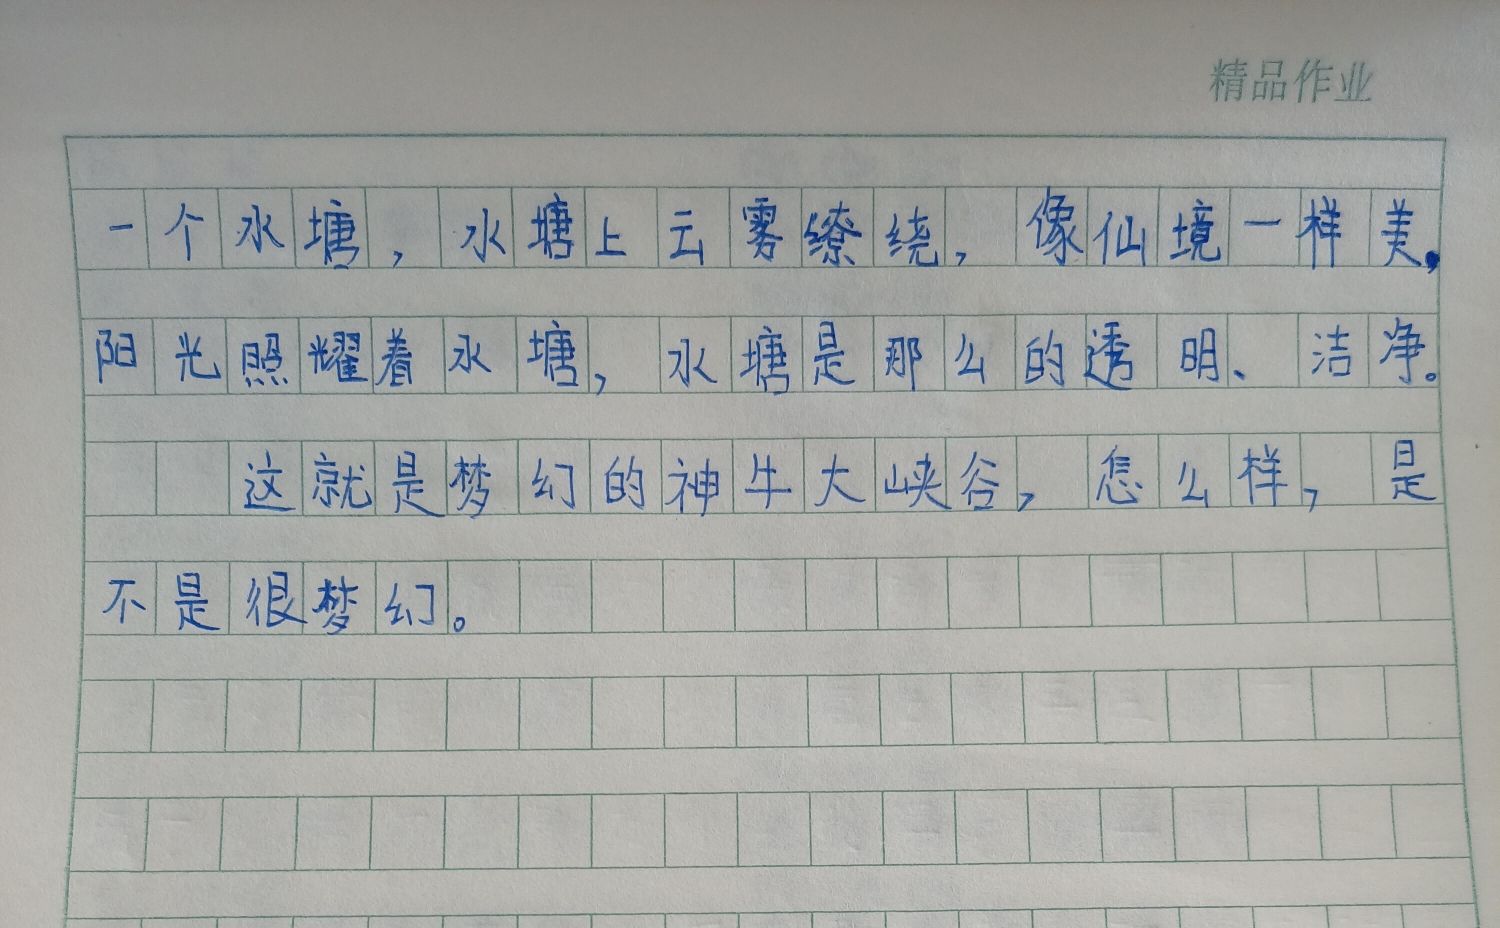 精品作业
一个水塘，水塘上云雾缭绕，像仙境一样美，
阳光照耀着水塘，水塘是那么的透明、洁净。
这就是梦幻的神牛大峡谷，怎么样，是
不是很梦幻。